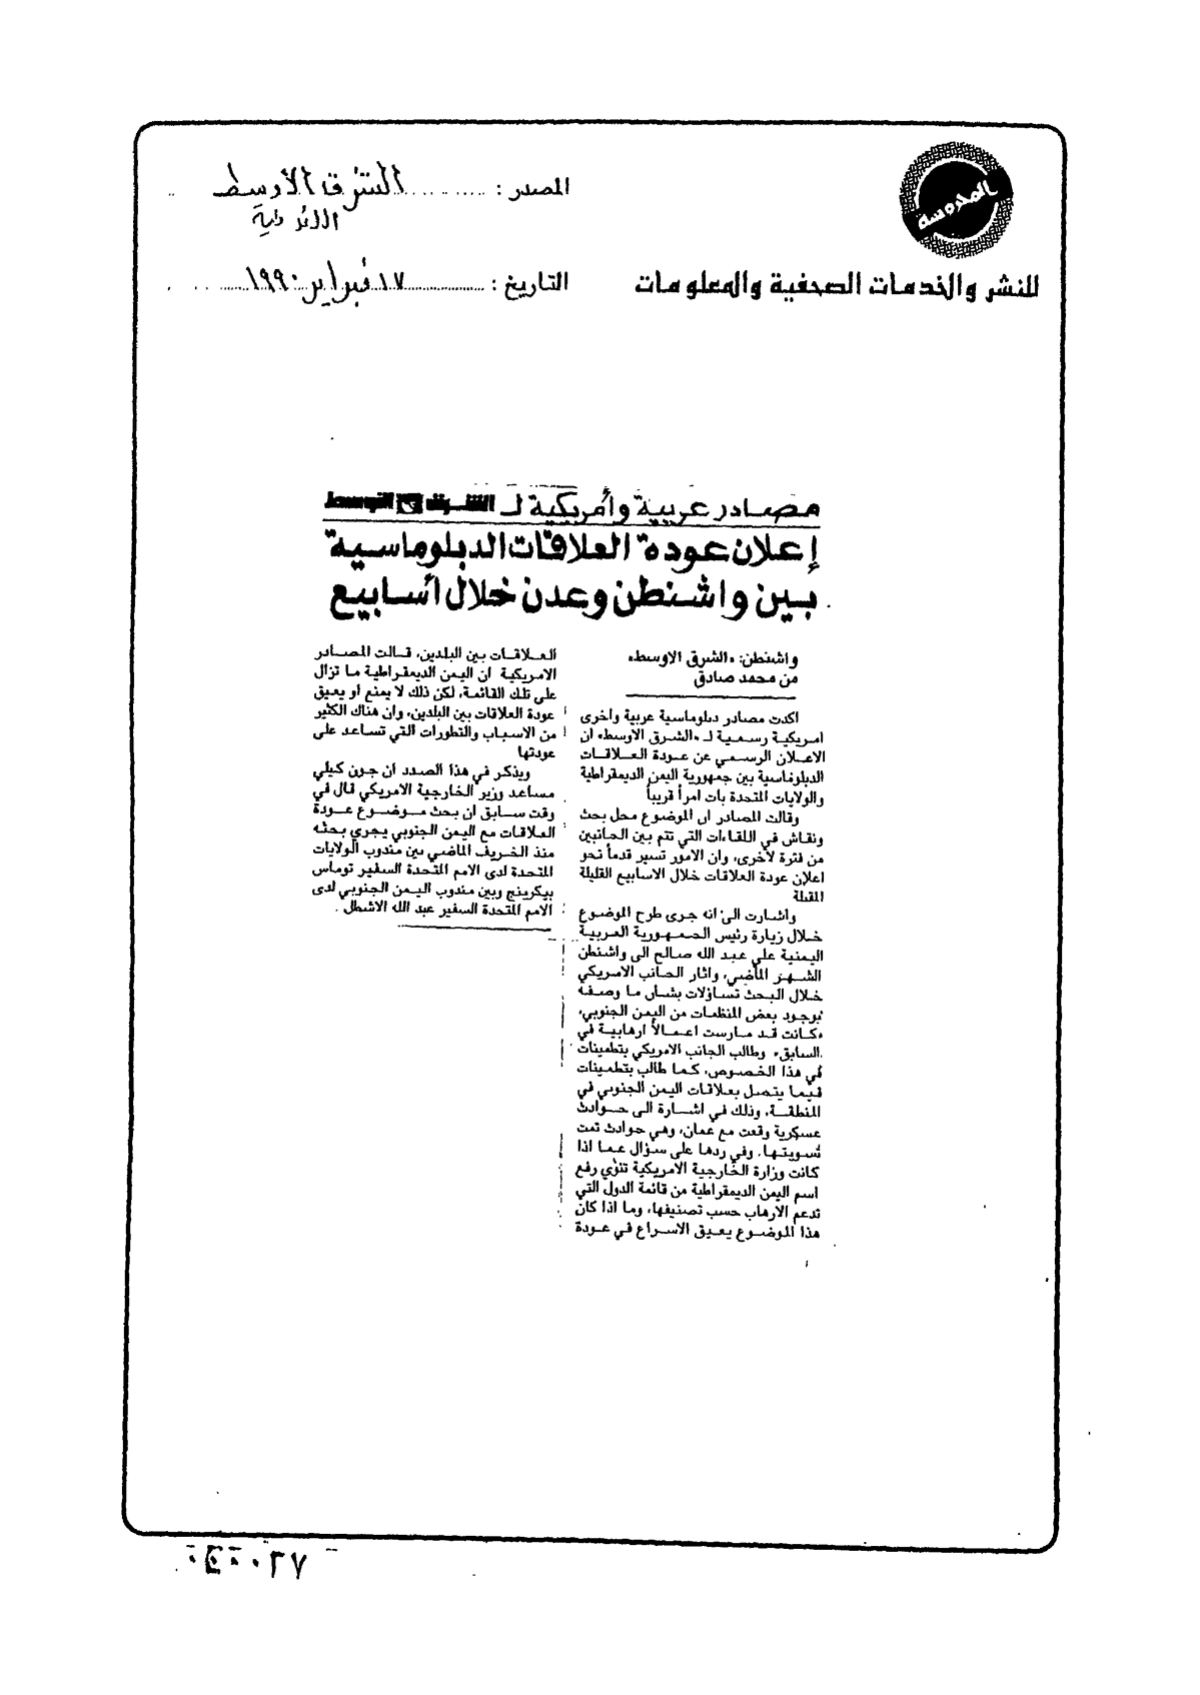 المحروسة
للنشر والخدمات الصحفية والمعلومات
المصدر : الشرق الأوسط
التاريخ : ١٧ فبراير ١٩٩٠
مصادر عربية وأمريكية لـ الشرق الاوسط
إعلان عودة العلاقات الدبلوماسية
بين واشنطن وعدن خلال أسابيع
واشنطن: «الشرق الاوسط»
من محمد صادق
اكدت مصادر دبلوماسية عربية واخرى
امريكية رسمية لـ «الشرق الاوسط» ان
الاعلان الرسمي عن عودة العلاقات
الدبلوماسية بين جمهورية اليمن الديمقراطية
والولايات المتحدة بات امرأ قريباً
وقالت المصادر ان الموضوع محل بحث
ونقاش في اللقاءات التي تتم بين الجانبين
من فترة لاخرى، وان الامور تسير قدماً نحو
اعلان عودة العلاقات خلال الاسابيع القليلة
المقبلة
واشارت الى انه جرى طرح الموضوع
خلال زيارة رئيس الجمهورية العربية
اليمنية علي عبد الله صالح الى واشنطن
الشهر الماضي، واثار الجانب الامريكي
خلال البحث تساؤلات بشأن ما وصفه
بوجود بعض المنظمات من اليمن الجنوبي،
«كانت قد مارست اعمالاً ارهابية في
السابق» وطالب الجانب الامريكي بتطمينات
في هذا الخصوص، كما طالب بتطمينات
فيما يتصل بعلاقات اليمن الجنوبي في
المنطقة، وذلك في اشارة الى حوادث
عسكرية وقعت مع عمان، وهي حوادث تمت
تسويتها. وفي ردها على سؤال عما اذا
كانت وزارة الخارجية الامريكية تنوي رفع
اسم اليمن الديمقراطية من قائمة الدول التي
تدعم الارهاب حسب تصنيفها، وما اذا كان
هذا الموضوع يعيق الاسراع في عودة
العلاقات بين البلدين، قالت المصادر
الامريكية ان اليمن الديمقراطية ما تزال
على تلك القائمة، لكن ذلك لا يمنع او يعيق
عودة العلاقات بين البلدين، وان هناك الكثير
من الاسباب والتطورات التي تساعد على
عودتها
ويذكر في هذا الصدد ان جون كيلي
مساعد وزير الخارجية الامريكي قال في
وقت سابق ان بحث موضوع عودة
العلاقات مع اليمن الجنوبي يجري بحثه
منذ الخريف الماضي بين مندوب الولايات
المتحدة لدى الامم المتحدة السفير توماس
بيكرينج وبين مندوب اليمن الجنوبي لدى
الامم المتحدة السفير عبد الله الاشطل .